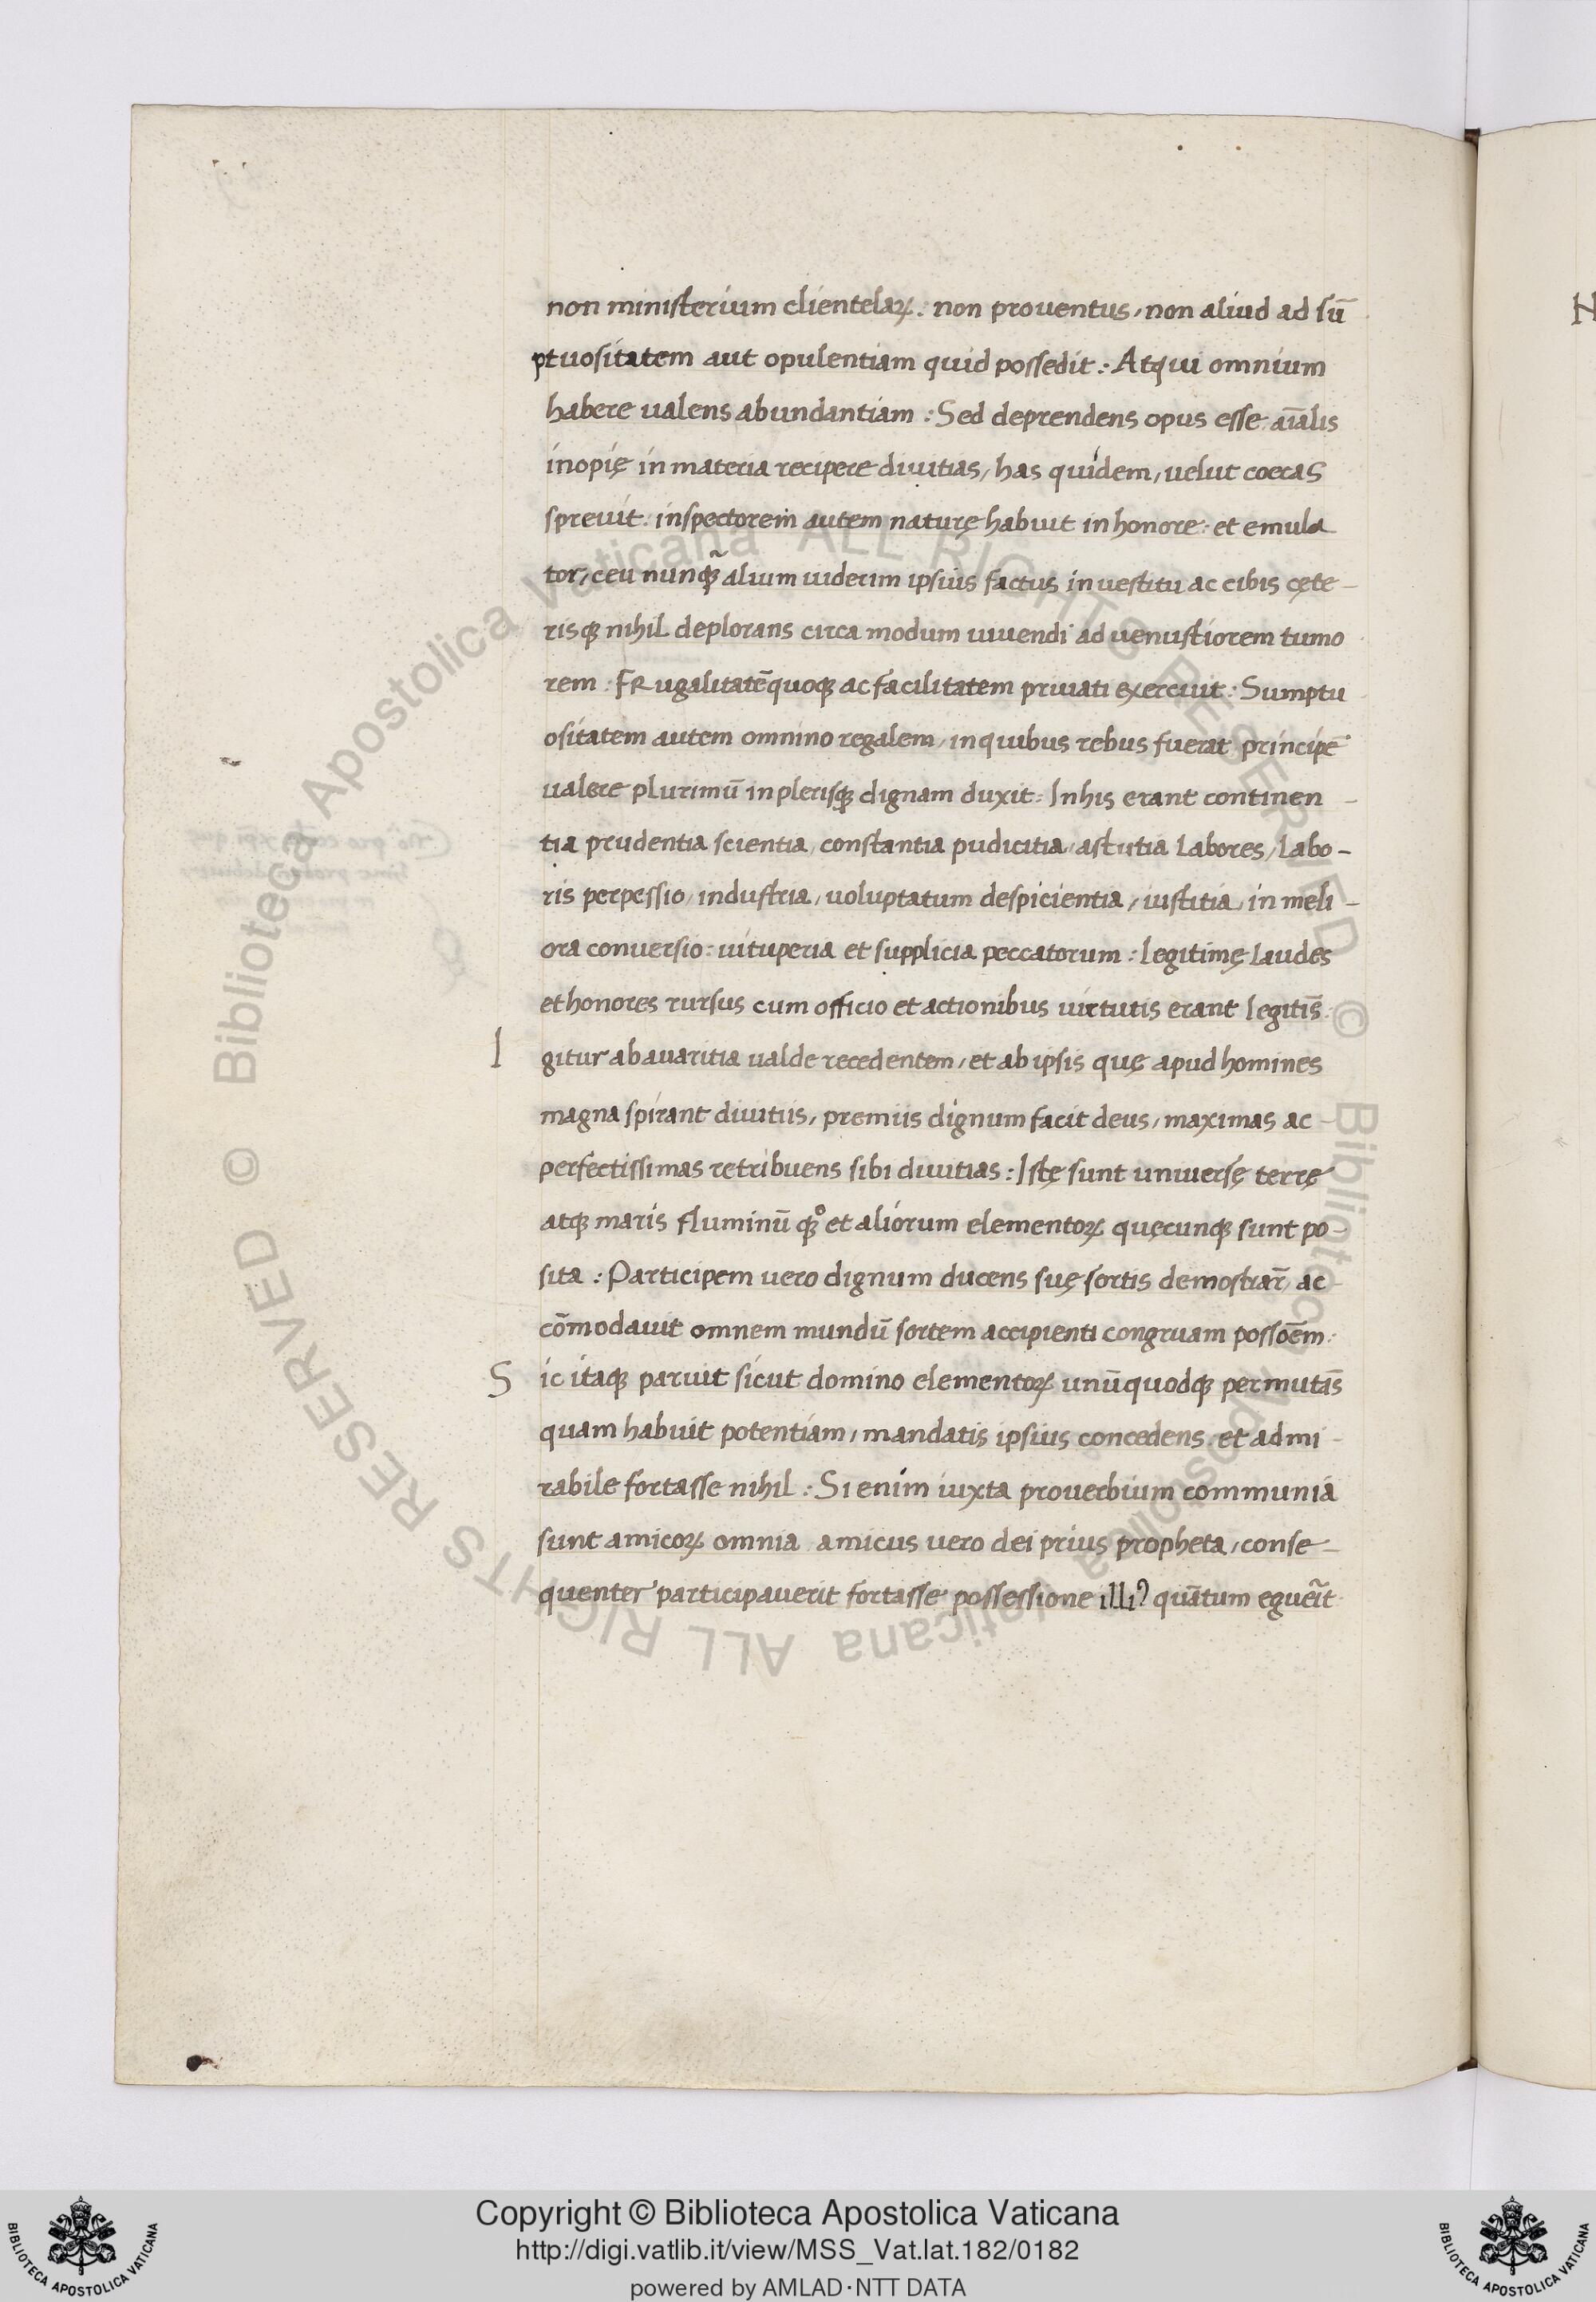 non ministerium clientelaꝝ: non prouentus, non aliud ad sū
ptuositatem aut opulentiam quid possedit: Atqui omnium
habere ualens abundantiam: Sed deprendens opus esse aīalis
inopię in materia recipere diuitias, has quidem, uelut coecas
spreuit: inspectorem autem naturę habuit in honore: et emula
tor, ceu nunqꝫ̃ alium uiderim ipsius factus in uestitu ac cibis cęte-
risqꝫ nihil deplorans circa modum uiuendi ad uenustiorem tumo
rem: FRugalitatē quoqꝫ ac facilitatem priuati exercuit: Sumptu
ositatem autem omnino regalem, in quibus rebus fuerat principē
ualere plurimū in plerisqꝫ dignam duxit: In his erant continen-
tia prudentia scientia, constantia pudicitia, astutia labores, labo-
ris perpessio, industria, uoluptatum despicientia, iustitia, in meli-
ora conuersio: uituperia et supplicia peccatorum: legitimę laudes
et honores rursus cum officio et actionibus uirtutis erant legitīs:
I gitur ab auaritia ualde recedentem, et ab ipsis quę apud homines
magna spirant diuitiis, premiis dignum facit deus, maximas ac-
perfectissimas retribuens sibi diuitias: Istę sunt uniuersę terrę
atqꝫ maris fluminū qꝫº et aliorum elementoꝝ quęcunqꝫ sunt po-
sita: Participem uero dignum ducens suę sortis demostrar̄, ac
cōmodauit omnem mundū sortem accipienti congruam possoēm:
S ic itaqꝫ paruit sicut domino elementoꝝ unūquodqꝫ permutās
quam habuit potentiam, mandatis ipsius concedens, et admi-
rabile fortasse nihil: Si enim iuxta prouerbium communia
sunt amicoꝝ omnia amicus uero dei prius propheta, conse-
quenter participauerit fortasse possessione illiꝰ quātum eguēit
Copyright © Biblioteca Apostolica Vaticana
http://digi.vatlib.it/view/MSS_Vat.lat.182/0182
powered by AMLAD·NTT DATA